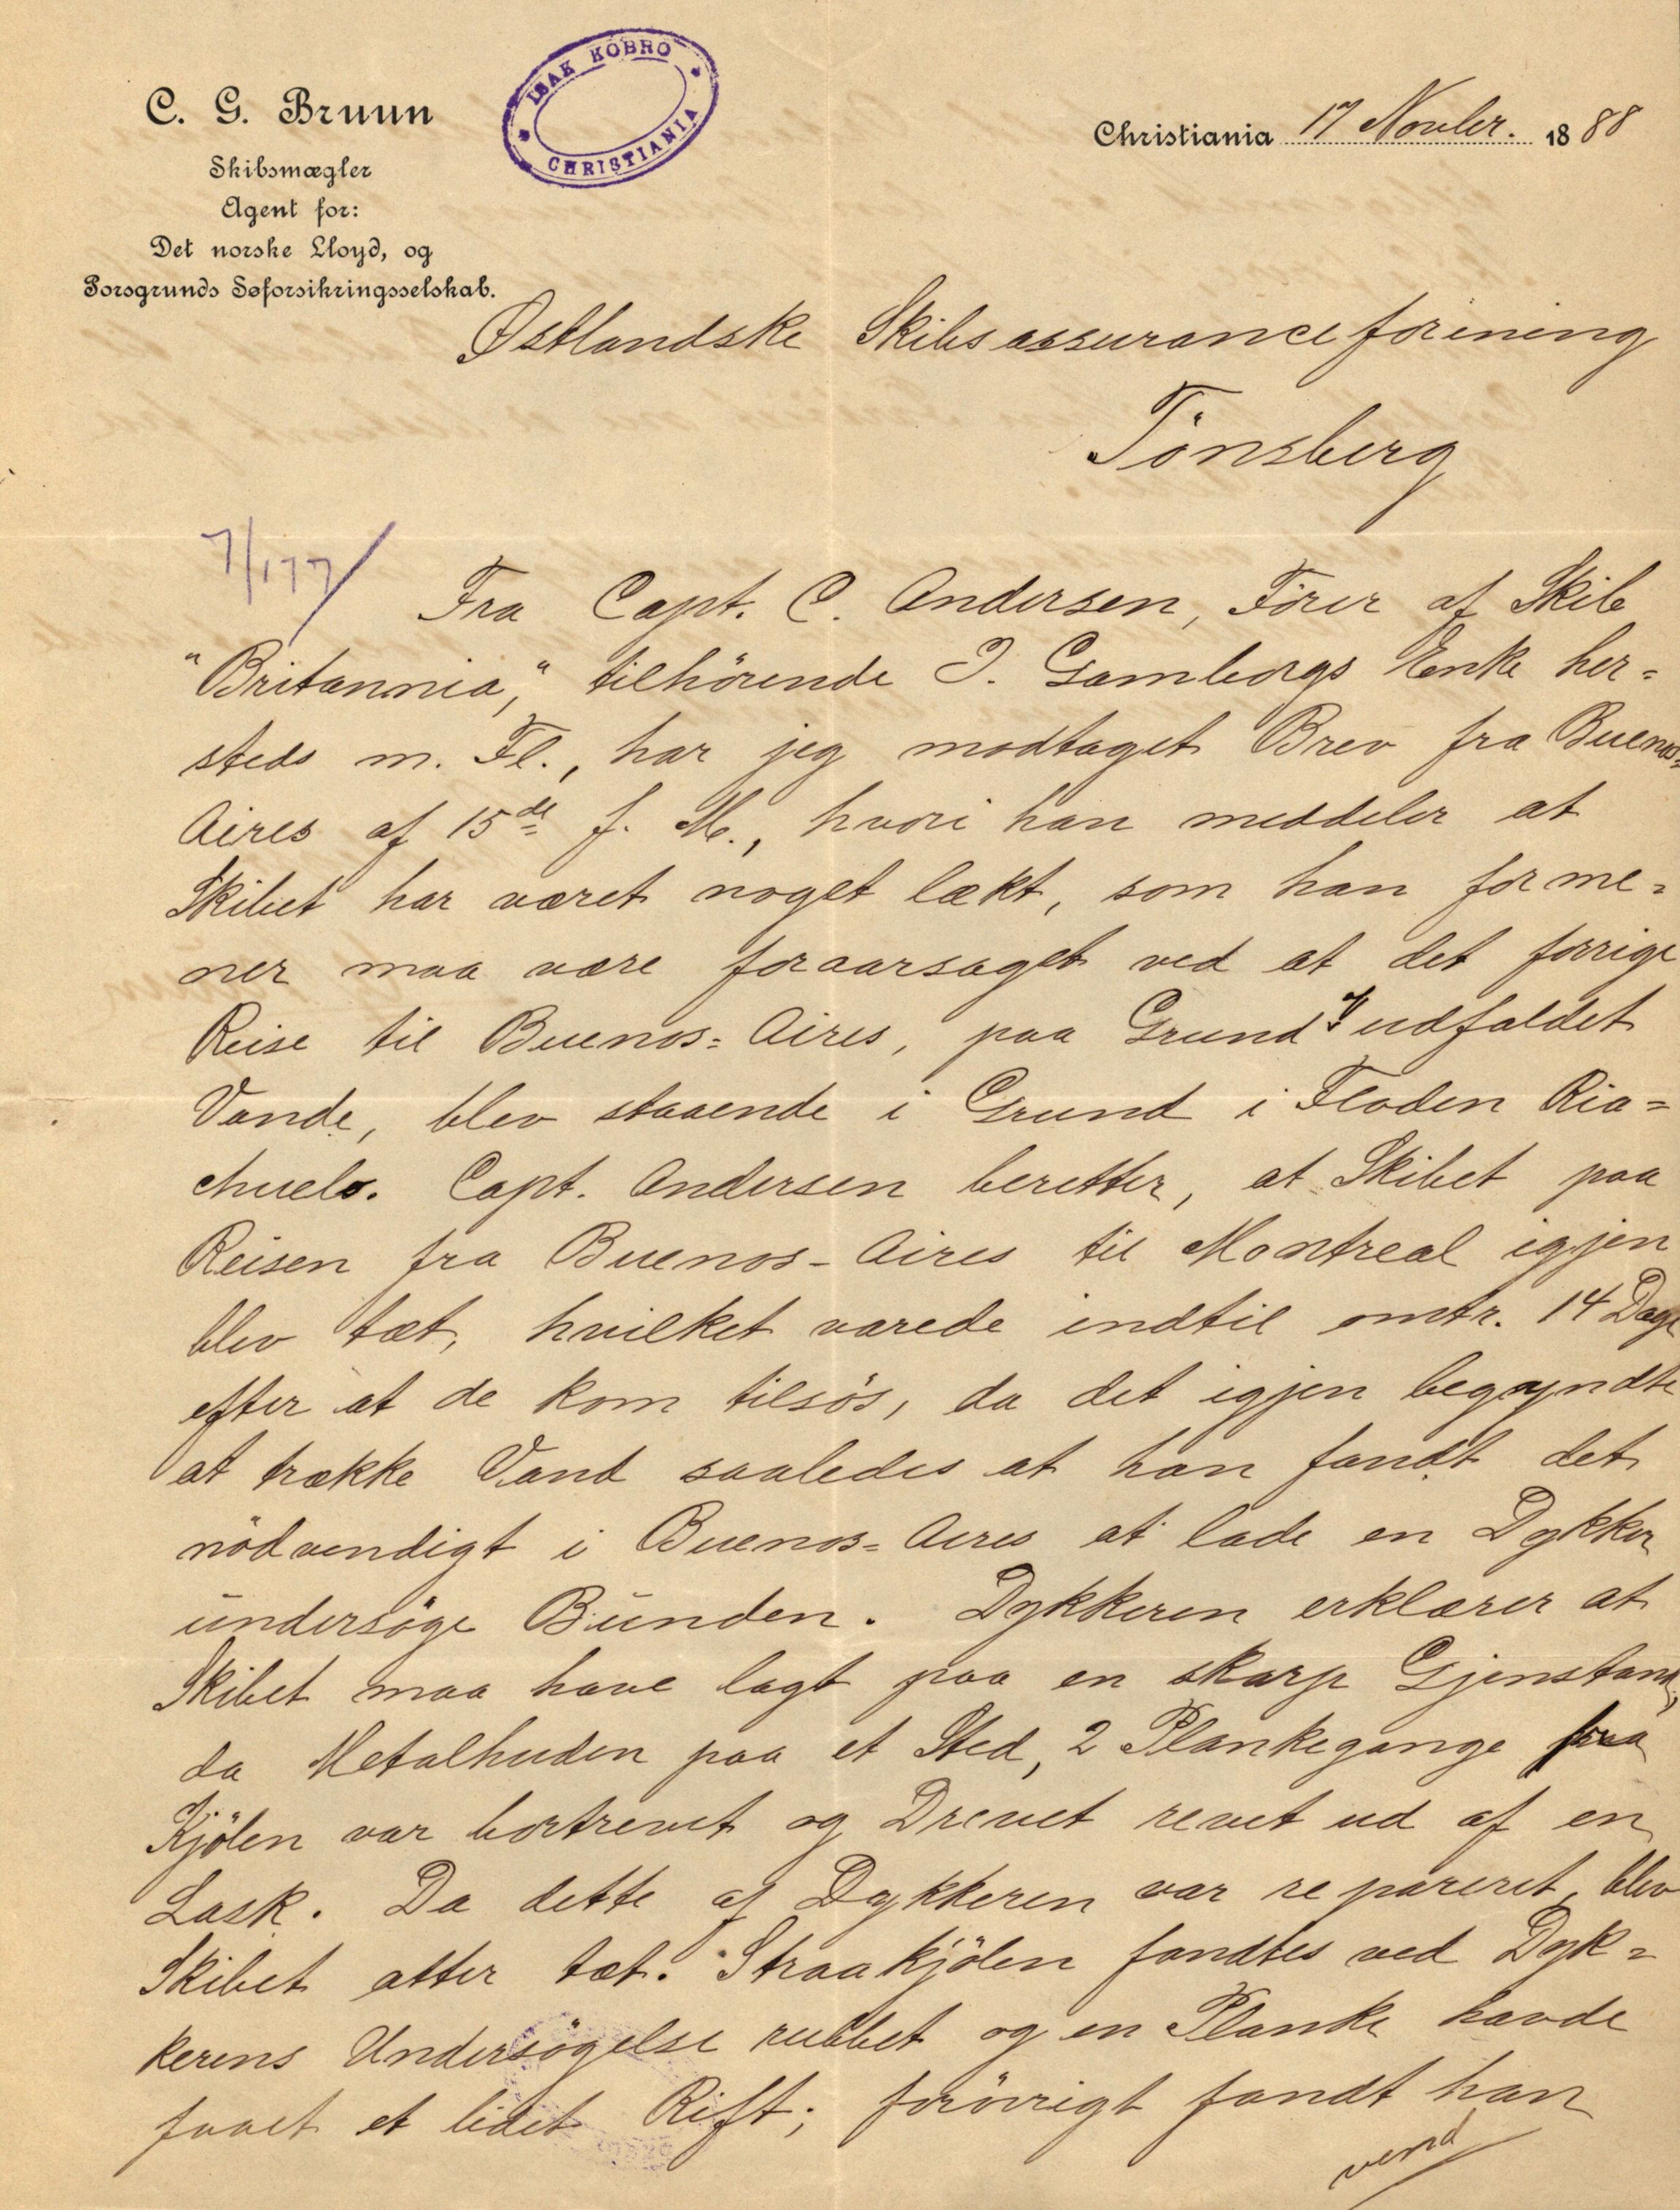 C. G. Bruun
Skibsmægler
Agent for:
Det norske Lloyd, og
Porsgrunds Søforsikringsselskab.
ISAK KOBRO
CHRISTIANIA
Christiania 17 Novber. 1888
Østlandske Skibsassuranceforening
Tönsberg
7/177
Fra Capt. C. Andersen, Förer af Skib
"Britannia," tilhörende J. Gamborgs Enke her=
steds m. Fl., har jeg modtaget Brev fra Buenos=
Aires af 15de f. M., hvori han meddeler at
Skibet har været noget lækt, som han forme=
ner maa være foraarsaget ved at det forrige
Reise til Buenos=Aires, paa Grund af udfaldet
Vande, blev staaende i Grund i Floden Ria=
chuelo. Capt. Andersen beretter, at Skibet paa
Reisen fra Buenos-Aires til Montreal igjen
blev tæt, hvilket varede indtil omtr. 14 Dage
efter at de kom tilsös, da det igjen begyndte
at trække Vand saaledes at han fandt det
nödvendigt i Buenos=Aires at lade en Dykker
undersöge Bunden. Dykkeren erklærer at
Skibet maa have lagt paa en skarp Gjenstand,
da Metalhuden paa et Sted, 2 Plankegange fra
Kjölen var bortrevet og Drevet revet ud af en
Lask. Da dette af Dykkeren var repareret, blev
Skibet atter tæt. Straakjölen fandtes ved Dyk=
kerens Undersögelse rubbet og en Planke havde
faaet et lidet Rift; forövrigt fandt han
vend